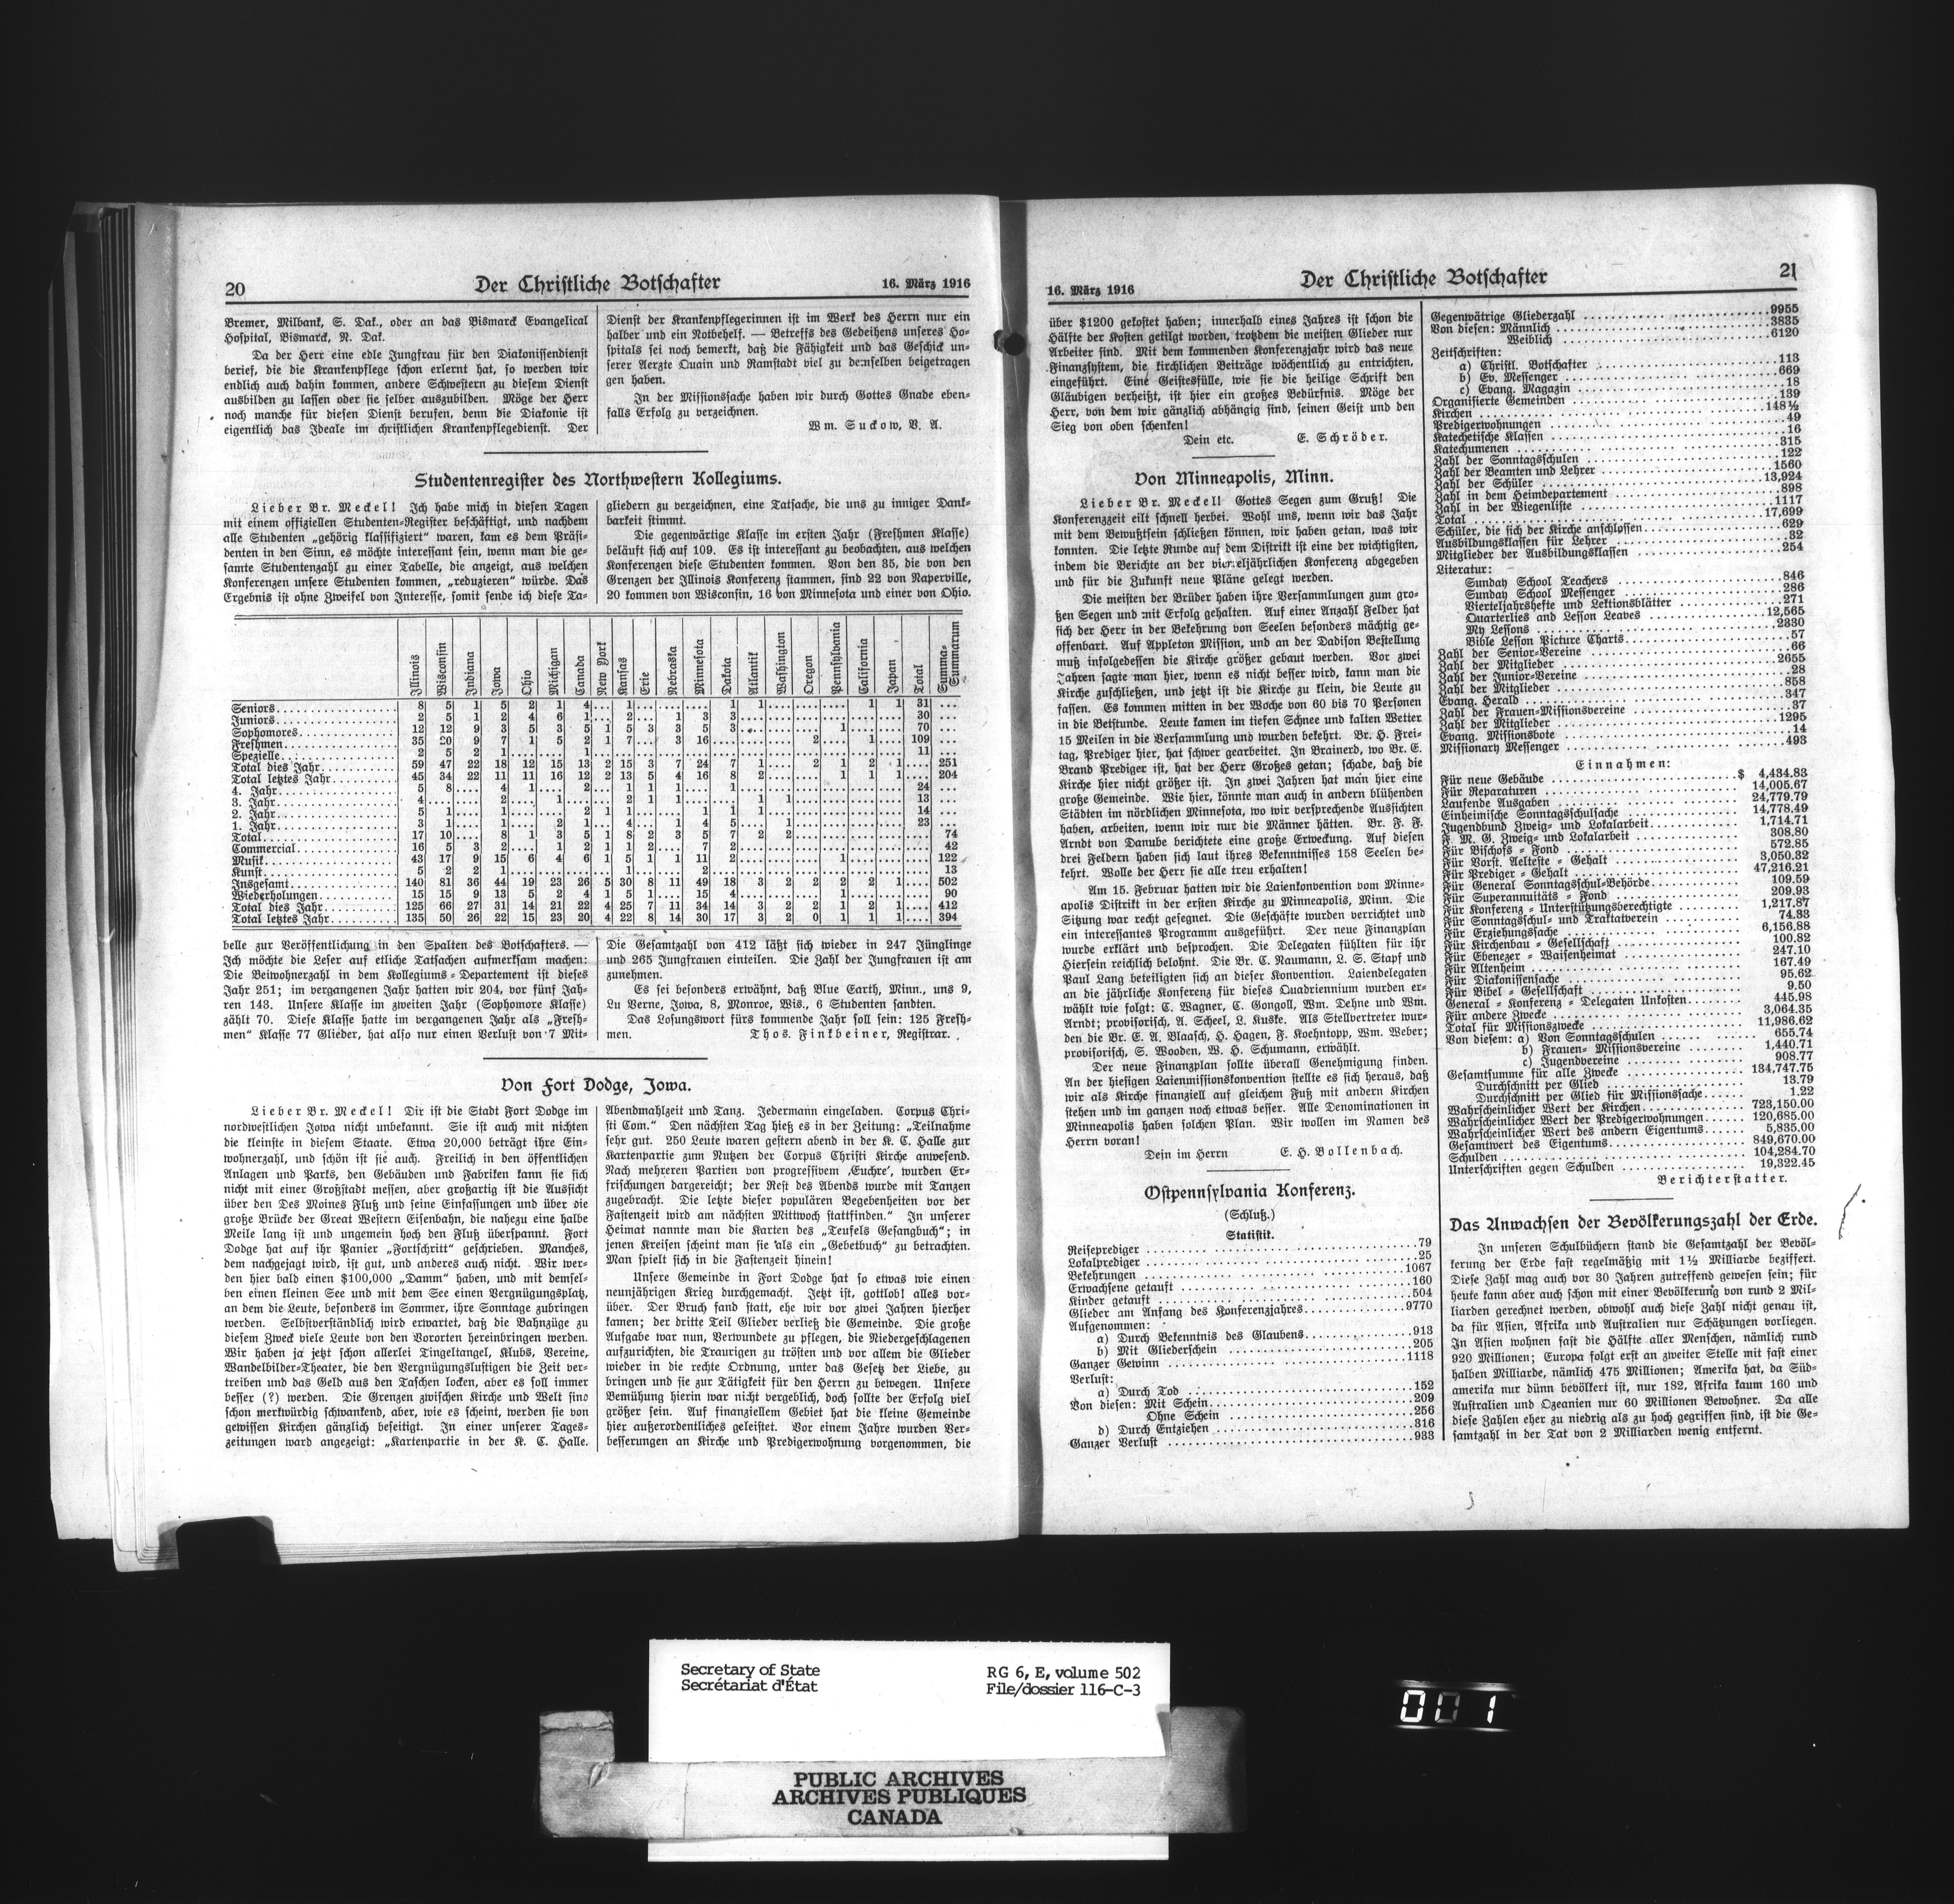 20
Der Christliche Botschafter
16. März 1916
Bremer, Milbank, S. Dak., oder an das Bismarck Evangelical
Hospital, Bismarck, N. Dak.
Da der Herr eine edle Jungfrau für den Diakonissendienst
berief, die die Krankenpflege schon erlernt hat, so werden wir
endlich auch dahin kommen, andere Schwestern zu diesem Dienst
ausbilden zu lassen oder sie selber auszubilden. Möge der Herr
noch manche für diesen Dienst berufen, denn die Diakonie ist
eigentlich das Ideale im christlichen Krankenpflegedienst. Der
Dienst der Krankenpflegerinnen ist im Werk des Herrn nur ein
halber und ein Notbehelf. — Betreffs des Gedeihens unseres Ho-
spitals sei noch bemerkt, daß die Fähigkeit und das Geschick un-
serer Aerzte Quain und Ramstadt viel zu demselben beigetragen
gen haben.
In der Missionssache haben wir durch Gottes Gnade eben-
falls Erfolg zu verzeichnen.
Wm. Suckow, V. A.
Studentenregister des Northwestern Kollegiums.
Lieber Br. Meckel! Ich habe mich in diesen Tagen
mit einem offiziellen Studenten-Register beschäftigt, und nachdem
alle Studenten „gehörig klassifiziert“ waren, kam es dem Präsi-
denten in den Sinn, es möchte interessant sein, wenn man die ge-
samte Studentenzahl zu einer Tabelle, die anzeigt, aus welchen
Konferenzen unsere Studenten kommen, „reduzieren“ würde. Das
Ergebnis ist ohne Zweifel von Interesse, somit sende ich diese Ta-
gliedern zu verzeichnen, eine Tatsache, die uns zu inniger Dank-
barkeit stimmt.
Die gegenwärtige Klasse im ersten Jahr (Freshmen Klasse)
beläuft sich auf 109. Es ist interessant zu beobachten, aus welchen
Konferenzen diese Studenten kommen. Von den 35, die von den
Grenzen der Illinois Konferenz stammen, sind 22 von Naperville,
20 kommen von Wisconsin, 16 von Minnesota und einer von Ohio.
Illinois Wisconsin Indiana Iowa Ohio Michigan Canada New York Kansas Erie Nebraska Minnesota Dakota Atlantik Washington Oregon Pennsylvania California Japan Total Summa-Summarum
Seniors 8 5 1 5 2 1 4 1 1 1 1 1 31
Juniors 2 5 1 2 4 6 1 2 1 3 3 30
Sophomores 12 12 9 3 5 3 5 1 5 3 3 5 3 1 70
Freshmen 35 20 9 7 1 5 2 1 7 3 16 2 1 109
Spezielle 2 5 2 1 1 11
Total dies Jahr 59 47 22 18 12 15 13 2 15 3 7 24 7 1 2 1 2 1 251
Total letztes Jahr 45 34 22 11 11 16 12 2 13 5 4 16 8 2 1 1 1 204
4. Jahr 5 8 4 1 2 1 1 1 1 24
3. Jahr 4 2 1 2 1 1 1 1 13
2. Jahr 5 1 1 2 1 1 1 1 1 14
1. Jahr 3 1 1 2 1 4 1 4 5 1 23
Total 17 10 8 1 3 5 1 8 2 3 5 7 2 2 74
Commercial 16 5 3 2 1 2 1 1 2 7 2 42
Musik 43 17 9 15 6 4 6 1 5 1 1 11 2 1 122
Kunst 5 2 2 1 1 2 13
Insgesamt 140 81 36 44 19 23 26 5 30 8 11 49 18 3 2 2 2 2 1 502
Wiederholungen 15 15 9 13 5 2 4 1 5 1 15 4 1 90
Total dies Jahr 125 66 27 31 14 21 22 4 25 7 11 34 14 3 2 2 1 2 1 412
Total letztes Jahr 135 50 26 22 15 23 20 4 22 8 14 30 17 3 2 0 1 1 1 394
belle zur Veröffentlichung in den Spalten des Botschafters. —
Ich möchte die Leser auf etliche Tatsachen aufmerksam machen:
Die Beiwohnerzahl in dem Kollegiums-Departement ist dieses
Jahr 251; im vergangenen Jahr hatten wir 204, vor fünf Jah-
ren 143. Unsere Klasse im zweiten Jahr (Sophomore Klasse)
zählt 70. Diese Klasse hatte im vergangenen Jahr als „Fresh-
men“ Klasse 77 Glieder, hat also nur einen Verlust von 7 Mit-
Die Gesamtzahl von 412 läßt sich wieder in 247 Jünglinge
und 265 Jungfrauen einteilen. Die Zahl der Jungfrauen ist am
zunehmen.
Es sei besonders erwähnt, daß Blue Earth, Minn., uns 9,
Lu Verne, Iowa, 8, Monroe, Wis., 6 Studenten sandten.
Das Losungswort fürs kommende Jahr soll sein: 125 Fresh-
men. Thos. Finkbeiner, Registrar.
Von Fort Dodge, Iowa.
Lieber Br. Meckel! Dir ist die Stadt Fort Dodge im
nordwestlichen Iowa nicht unbekannt. Sie ist auch mit nichten
die kleinste in diesem Staate. Etwa 20,000 beträgt ihre Ein-
wohnerzahl, und schön ist sie auch. Freilich in den öffentlichen
Anlagen und Parks, den Gebäuden und Fabriken kann sie sich
nicht mit einer Großstadt messen, aber großartig ist die Aussicht
über den Des Moines Fluß und seine Einfassungen und über die
große Brücke der Great Western Eisenbahn, die nahezu eine halbe
Meile lang ist und ungemein hoch den Fluß überspannt. Fort
Dodge hat auf ihr Panier „Fortschritt“ geschrieben. Manches,
dem nachgejagt wird, ist gut, und anderes auch nicht. Wir wer-
den hier bald einen $100,000 „Damm“ haben, und mit demsel-
ben einen kleinen See und mit dem See einen Vergnügungsplatz,
an dem die Leute, besonders im Sommer, ihre Sonntage zubringen
werden. Selbstverständlich wird erwartet, daß die Bahnzüge zu
diesem Zweck viele Leute von den Vororten hereinbringen werden.
Wir haben ja jetzt schon allerlei Tingeltangel, Klubs, Vereine,
Wandelbilder-Theater, die den Vergnügungslustigen die Zeit ver-
treiben und das Geld aus den Taschen locken, aber es soll immer
besser (?) werden. Die Grenzen zwischen Kirche und Welt sind
schon merkwürdig schwankend, aber, wie es scheint, werden sie von
gewissen Kirchen gänzlich beseitigt. In einer unserer Tages-
zeitungen ward angezeigt: „Kartenpartie in der K. C. Halle.
Abendmahlzeit und Tanz. Jedermann eingeladen. Corpus Chri-
sti Com.“ Den nächsten Tag hieß es in der Zeitung: „Teilnahme
sehr gut. 250 Leute waren gestern abend in der K. C. Halle zur
Kartenpartie zum Nutzen der Corpus Christi Kirche anwesend.
Nach mehreren Partien von progressivem ‚Euchre‘, wurden Er-
frischungen dargereicht; der Rest des Abends wurde mit Tanzen
zugebracht. Die letzte dieser populären Begebenheiten vor der
Fastenzeit wird am nächsten Mittwoch stattfinden.“ In unserer
Heimat nannte man die Karten des „Teufels Gesangbuch“; in
jenen Kreisen scheint man sie als ein „Gebetbuch“ zu betrachten.
Man spielt sich in die Fastenzeit hinein!
Unsere Gemeinde in Fort Dodge hat so etwas wie einen
neunjährigen Krieg durchgemacht. Jetzt ist, gottlob! alles vor-
über. Der Bruch fand statt, ehe wir vor zwei Jahren hierher
kamen; der dritte Teil Glieder verließ die Gemeinde. Die große
Aufgabe war nun, Verwundete zu pflegen, die Niedergeschlagenen
aufzurichten, die Traurigen zu trösten und vor allem die Glieder
wieder in die rechte Ordnung, unter das Gesetz der Liebe, zu
bringen und sie zur Tätigkeit für den Herrn zu bewegen. Unsere
Bemühung hierin war nicht vergeblich, doch sollte der Erfolg viel
größer sein. Auf finanziellem Gebiet hat die kleine Gemeinde
hier außerordentliches geleistet. Vor einem Jahre wurden Ver-
besserungen an Kirche und Predigerwohnung vorgenommen, die
16. März 1916
Der Christliche Botschafter
21
über $1200 gekostet haben; innerhalb eines Jahres ist schon die
Hälfte der Kosten getilgt worden, trotzdem die meisten Glieder nur
Arbeiter sind. Mit dem kommenden Konferenzjahr wird das neue
Finanzsystem, die kirchlichen Beiträge wöchentlich zu entrichten,
eingeführt. Eine Geistesfülle, wie sie die heilige Schrift den
Gläubigen verheißt, ist hier ein großes Bedürfnis. Möge der
Herr, von dem wir gänzlich abhängig sind, seinen Geist und den
Sieg von oben schenken!
Dein etc. E. Schröder.
Von Minneapolis, Minn.
Lieber Br. Meckel! Gottes Segen zum Gruß! Die
Konferenzzeit eilt schnell herbei. Wohl uns, wenn wir das Jahr
mit dem Bewußtsein schließen können, wir haben getan, was wir
konnten. Die letzte Runde auf dem Distrikt ist eine der wichtigsten,
indem die Berichte an der vierteljährlichen Konferenz abgegeben
und für die Zukunft neue Pläne gelegt werden.
Die meisten der Brüder haben ihre Versammlungen zum gro-
ßen Segen und mit Erfolg gehalten. Auf einer Anzahl Felder hat
sich der Herr in der Bekehrung von Seelen besonders mächtig ge-
offenbart. Auf Appleton Mission, und an der Dadison Bestellung
muß infolgedessen die Kirche größer gebaut werden. Vor zwei
Jahren sagte man hier, wenn es nicht besser wird, kann man die
Kirche zuschließen, und jetzt ist die Kirche zu klein, die Leute zu
fassen. Es kommen mitten in der Woche von 60 bis 70 Personen
in die Betstunde. Leute kamen im tiefen Schnee und kalten Wetter
15 Meilen in die Versammlung und wurden bekehrt. Br. H. Frei-
tag, Prediger hier, hat schwer gearbeitet. In Brainerd, wo Br. E.
Brand Prediger ist, hat der Herr Großes getan; schade, daß die
Kirche hier nicht größer ist. In zwei Jahren hat man hier eine
große Gemeinde. Wie hier, könnte man auch in andern blühenden
Städten im nördlichen Minnesota, wo wir versprechende Aussichten
haben, arbeiten, wenn wir nur die Männer hätten. Br. F. F.
Arndt von Danube berichtete eine große Erweckung. Auf diesen
drei Feldern haben sich laut ihres Bekenntnisses 158 Seelen be-
kehrt. Wolle der Herr sie alle treu erhalten!
Am 15. Februar hatten wir die Laienkonvention vom Minne-
apolis Distrikt in der ersten Kirche zu Minneapolis, Minn. Die
Sitzung war recht gesegnet. Die Geschäfte wurden verrichtet und
ein interessantes Programm ausgeführt. Der neue Finanzplan
wurde erklärt und besprochen. Die Delegaten fühlten für ihr
Hiersein reichlich belohnt. Die Br. C. Naumann, L. S. Stapf und
Paul Lang beteiligten sich an dieser Konvention. Laiendelegaten
an die jährliche Konferenz für dieses Quadriennium wurden er-
wählt wie folgt: C. Wagner, C. Gongoll, Wm. Dehne und Wm.
Arndt; provisorisch, A. Scheel, L. Kuske. Als Stellvertreter wur-
den die Br. E. A. Blaasch, H. Hagen, F. Koehntopp, Wm. Weber;
provisorisch, S. Wooden, W. H. Schumann, erwählt.
Der neue Finanzplan sollte überall Genehmigung finden.
An der hiesigen Laienmissionskonvention stellte es sich heraus, daß
wir als Kirche finanziell auf gleichem Fuß mit andern Kirchen
stehen und im ganzen noch etwas besser. Alle Denominationen in
Minneapolis haben solchen Plan. Wir wollen im Namen des
Herrn voran!
Dein im Herrn E. H. Bollenbach.
Ostpennsylvania Konferenz.
(Schluß.)
Statistik.
Reiseprediger 79
Lokalprediger 25
Bekehrungen 1067
Erwachsene getauft 160
Kinder getauft 504
Glieder am Anfang des Konferenzjahres 9770
Aufgenommen:
a) Durch Bekenntnis des Glaubens 913
b) Mit Gliederschein 205
Ganzer Gewinn 1118
Verlust:
a) Durch Tod 152
Von diesen: Mit Schein 209
Ohne Schein 256
b) Durch Entziehen 316
Ganzer Verlust 933
Gegenwärtige Gliederzahl 9955
Von diesen: Männlich 3835
Weiblich 6120
Zeitschriften:
a) Christl. Botschafter 113
b) Ev. Messenger 669
c) Evang. Magazin 18
Organisierte Gemeinden 139
Kirchen 148½
Predigerwohnungen 49
Katechetische Klassen 16
Katechumenen 315
Zahl der Sonntagschulen 122
Zahl der Beamten und Lehrer 1560
Zahl der Schüler 13,924
Zahl in dem Heimdepartement 898
Zahl in der Wiegenliste 1117
Total 17,699
Schüler, die sich der Kirche anschlossen 629
Ausbildungsklassen für Lehrer 32
Mitglieder der Ausbildungsklassen 254
Literatur:
Sunday School Teachers 846
Sunday School Messenger 286
Vierteljahrshefte und Lektionsblätter 271
Quarterlies and Lesson Leaves 12,565
My Lessons 2330
Bible Lesson Picture Charts 57
Zahl der Senior-Vereine 66
Zahl der Mitglieder 2655
Zahl der Junior-Vereine 28
Zahl der Mitglieder 858
Evang. Herald 347
Zahl der Frauen-Missionsvereine 37
Zahl der Mitglieder 1295
Evang. Missionsbote 14
Missionary Messenger 493
Einnahmen:
Für neue Gebäude $ 4,434.83
Für Reparaturen 14,005.67
Laufende Ausgaben 24,779.79
Einheimische Sonntagschulsache 14,778.49
Jugendbund Zweig- und Lokalarbeit 1,714.71
F. M. G. Zweig- und Lokalarbeit 308.80
Für Bischofs-Fond 572.85
Für Vorst. Aelteste-Gehalt 3,050.32
Für Prediger-Gehalt 47,216.21
Für General Sonntagschul-Behörde 109.59
Für Superannuitäts-Fond 209.93
Für Konferenz-Unterstützungsberechtigte 1,217.87
Für Sonntagschul- und Traktatverein 74.33
Für Erziehungssache 6,156.88
Für Kirchenbau-Gesellschaft 100.82
Für Ebenezer-Waisenheimat 247.10
Für Altenheim 167.49
Für Diakonissensache 95.62
Für Bibel-Gesellschaft 9.50
General-Konferenz-Delegaten Unkosten 445.98
Für andere Zwecke 3,064.35
Total für Missionszwecke 11,986.62
Von diesem: a) Von Sonntagschulen 655.74
b) Frauen-Missionsvereine 1,440.71
c) Jugendvereine 908.77
Gesamtsumme für alle Zwecke 134,747.75
Durchschnitt per Glied 13.79
Durchschnitt per Glied für Missionssache 1.22
Wahrscheinlicher Wert der Kirchen 723,150.00
Wahrscheinlicher Wert der Predigerwohnungen 120,685.00
Wahrscheinlicher Wert des andern Eigentums 5,835.00
Gesamtwert des Eigentums 849,670.00
Schulden 104,284.70
Unterschriften gegen Schulden 19,322.45
Berichterstatter.
Das Anwachsen der Bevölkerungszahl der Erde.
In unseren Schulbüchern stand die Gesamtzahl der Bevöl-
kerung der Erde fast regelmäßig mit 1½ Milliarde beziffert.
Diese Zahl mag auch vor 30 Jahren zutreffend gewesen sein; für
heute kann aber auch schon mit einer Bevölkerung von rund 2 Mil-
liarden gerechnet werden, obwohl auch diese Zahl nicht genau ist,
da für Asien, Afrika und Australien nur Schätzungen vorliegen.
In Asien wohnen fast die Hälfte aller Menschen, nämlich rund
920 Millionen; Europa folgt erst an zweiter Stelle mit fast einer
halben Milliarde, nämlich 475 Millionen; Amerika hat, da Süd-
amerika nur dünn bevölkert ist, nur 182, Afrika kaum 160 und
Australien und Ozeanien nur 60 Millionen Bewohner. Da alle
diese Zahlen eher zu niedrig als zu hoch gegriffen sind, ist die Ge-
samtzahl in der Tat von 2 Milliarden wenig entfernt.
Secretary of State
Secrétariat d'État
RG 6, E, volume 502
File/dossier 116-C-3
PUBLIC ARCHIVES
ARCHIVES PUBLIQUES
CANADA
001